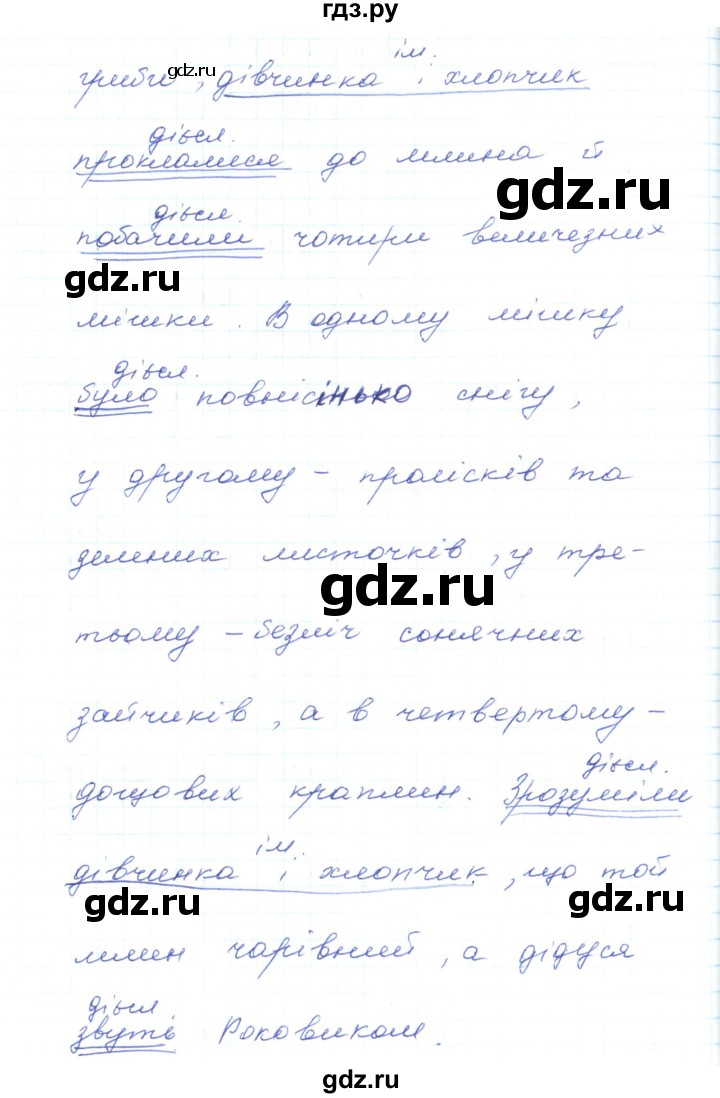 гдз.ру
ім.
гриби, дівчинка і хлопчик
gdz.ru
дієсл.
прокламися до млина й
gdz.ru
дієсл.
побачили чотири величезних
gdz.ru
мішки. В одному мішку
дієсл.
було повнісінько снігу,
у другому – пролісків та
зелених листочків, у тре-
gdz.ru
тьому – безліч сонячних
зайчиків, а в четвертому –
дієсл.
дощових краплин. Зрозуміли
ім.
дівчинка і хлопчик, що той
gdz.ru
gdz.ru
млин чарівний, а дідуся
дієсл.
звуть Роковиком.
gdz.ru